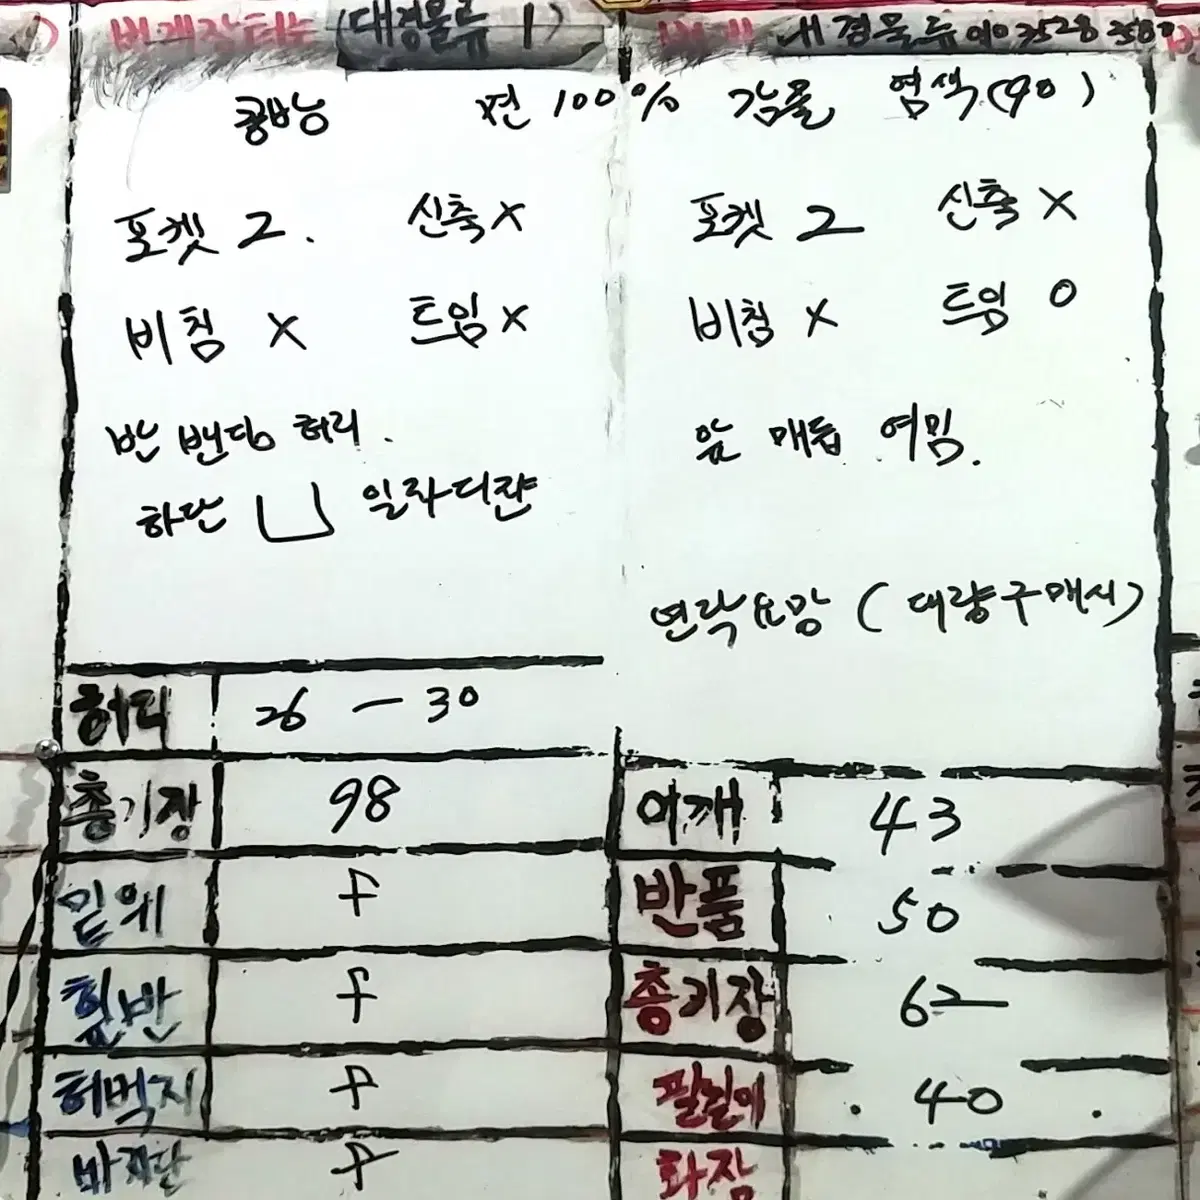 번개장터는 (대경물류 1)
번개 대경물류 010 3528 3580
면 100% 감물 염색(90)
포켓 2. 신축 X
비침 X 트임 X
반 밴딩 허리.
하단 일라디쟌
포켓 2 신축 X
비침 X 트임 O
앞 매듭 여밈.
연락요망 (대량구매시)
허리 26 - 30
총기장 98
밑위 F
힙반 F
허벅지 F
바지단 F
어깨 43
반품 50
총기장 62
팔길이 40
화장